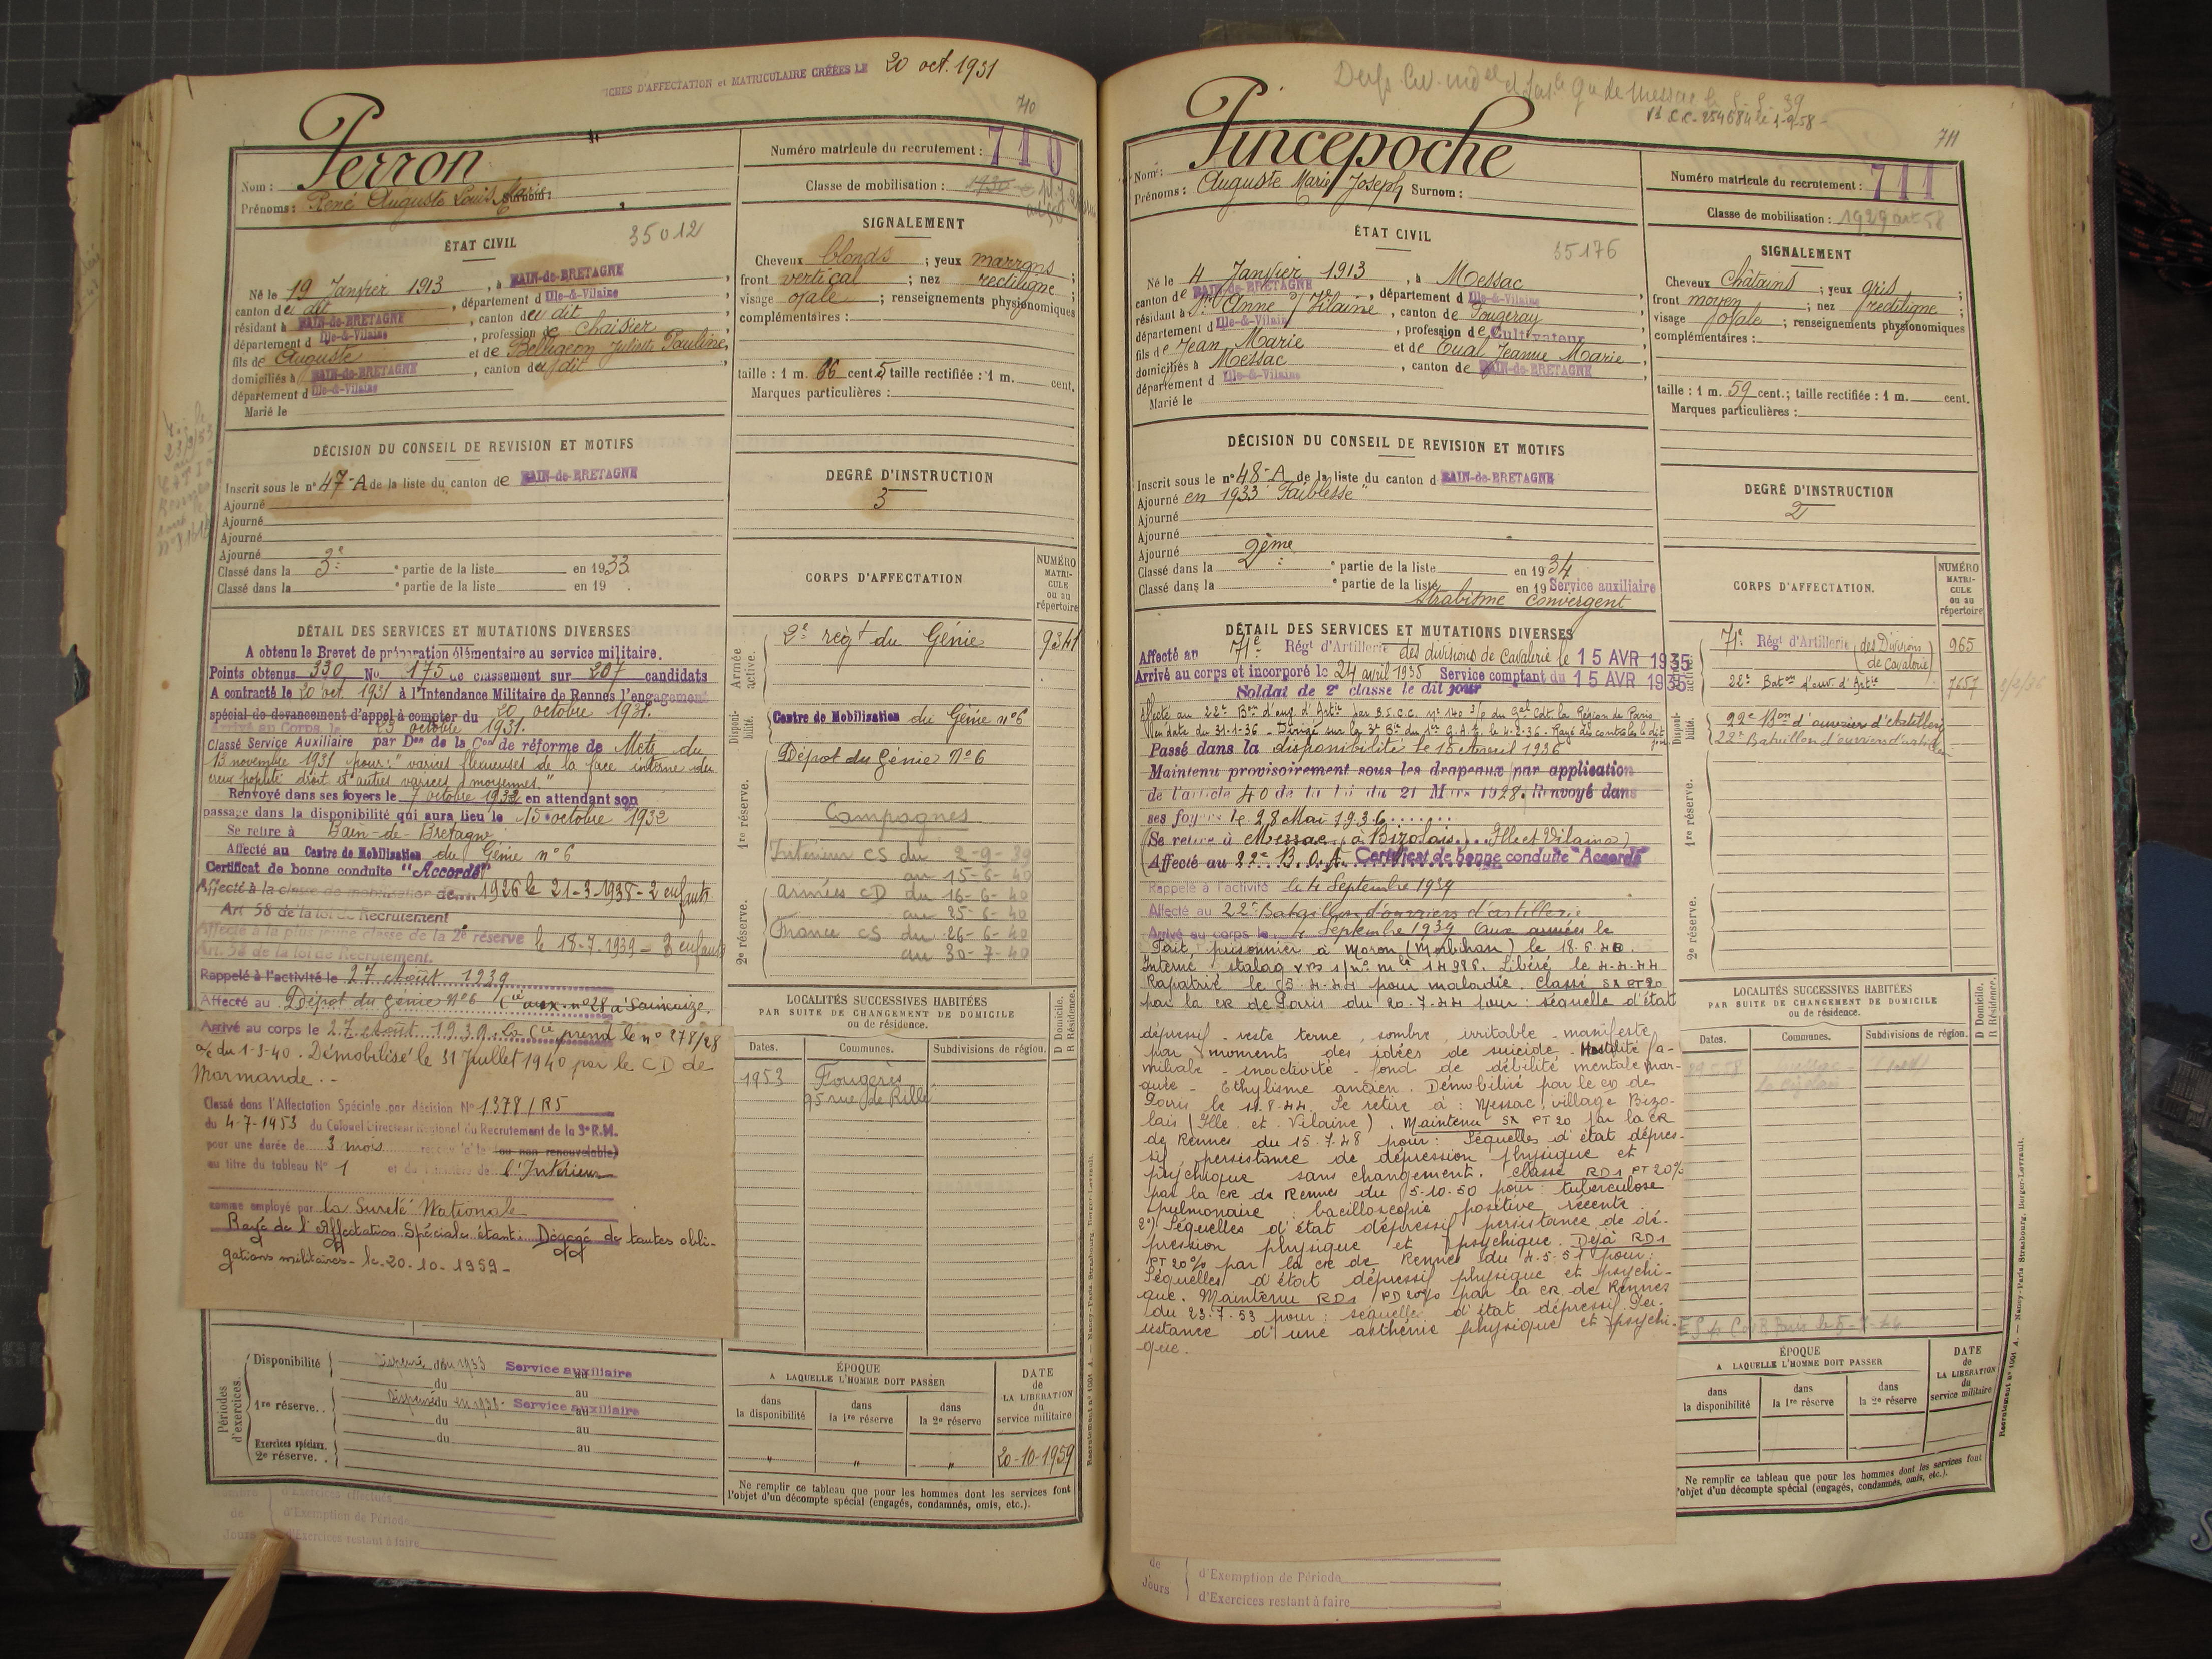 FICHES D'AFFECTATION et MATRICULAIRE CRÉÉES LE 20 oct. 1931
710
Nom : Perron
Prénoms : René Auguste Louis Marie Surnom :
Numéro matricule du recrutement : 710
Classe de mobilisation : 1930
ÉTAT CIVIL
35012
Né le 19 Janvier 1913, à BAIN-de-BRETAGNE,
canton du dit, département d Ille-&-Vilaine,
résidant à BAIN-de-BRETAGNE, canton du dit
département d Ille-&-Vilaine, profession de Chaisier
fils de Auguste et de Belligeon Juliette Pauline,
domiciliés à BAIN-de-BRETAGNE, canton du dit,
département d Ille-&-Vilaine
Marié le
SIGNALEMENT
Cheveux blonds ; yeux marrons ;
front vertical ; nez rectiligne ;
visage ovale ; renseignements physionomiques
complémentaires :
taille : 1 m. 66 cent. 5 taille rectifiée : 1 m. cent.
Marques particulières :
DÉCISION DU CONSEIL DE REVISION ET MOTIFS
Inscrit sous le n° 47-A de la liste du canton de BAIN-de-BRETAGNE
Ajourné
Ajourné
Ajourné
Ajourné
Classé dans la 3e ° partie de la liste en 1933
Classé dans la ° partie de la liste en 19 .
DEGRÉ D'INSTRUCTION
3
DÉTAIL DES SERVICES ET MUTATIONS DIVERSES
A obtenu le Brevet de préparation élémentaire au service militaire.
Points obtenus 330 No 175 de classement sur 207 candidats
A contracté le 20 oct. 1931 à l'Intendance Militaire de Rennes l'engagement
spécial de devancement d'appel à compter du 20 octobre 1931.
Arrivé au Corps le 23 octobre 1931.
Classé Service Auxiliaire par Don de la Con de réforme de Metz du
13 novembre 1931 pour : "varices flexueuses de la face interne du
creux poplité droit et autres varices moyennes."
Renvoyé dans ses foyers le 7 octobre 1932 en attendant son
passage dans la disponibilité qui aura lieu le 15 octobre 1932
Se retire à Bain-de-Bretagne
Affecté au Centre de Mobilisation du Génie n° 6
Certificat de bonne conduite "Accordé"
Affecté à la classe de mobilisation de 1926 le 21-3-1938 - 2 enfants
Art 58 de la loi de Recrutement
Affecté à la plus jeune classe de la 2e réserve le 18-7-1939 - 3 enfants
Art. 58 de la loi de Recrutement.
Rappelé à l'activité le 27 Août 1939
Affecté au Dépôt du Génie N° 6 Cie aux. n° 28 à Saincaize.
Arrivé au corps le 27 Août 1939. La Cie prend le n° 278/28
a/c du 1-3-40. Démobilisé le 31 Juillet 1940 par le C D de
Marmande. -
Classé dans l'Affectation Spéciale par décision N° 1378 / R5
du 4-7-1953 du Colonel Directeur Régional du Recrutement de la 3e R.M.
pour une durée de 3 mois renouvelable (ou non renouvelable)
au titre du tableau N° 1 et du Ministère de l'Intérieur
comme employé par la Sureté Nationale
Rayé de l'Affectation Spéciale étant Dégagé de toutes obli-
gations militaires - le 20-10-1959 -
CORPS D'AFFECTATION
NUMÉRO MATRI-CULE ou au répertoire
Armée active.
2e régt du Génie 9341
Disponi-bilité.
Centre de Mobilisation du Génie n° 6
1re réserve.
Dépôt du Génie N° 6
Campagnes
Intérieur CS du 2-9-39
au 15-6-40
2e réserve.
Armées CD du 16-6-40
au 25-6-40
France CS du 26-6-40
au 30-7-40
LOCALITÉS SUCCESSIVES HABITÉES
PAR SUITE DE CHANGEMENT DE DOMICILE
ou de résidence.
D Domicile.
R Résidence.
Dates. Communes. Subdivisions de région.
1953 Fougères
95 rue de Rillé
Périodes d'exercices.
Disponibilité Dispensé du 1933 Service auxiliaire au
du au
1re réserve. . Dispensé du en 1938 - Service auxiliaire au
du au
Exercices spéciaux. 2e réserve. . du au
ÉPOQUE
A LAQUELLE L'HOMME DOIT PASSER
dans la disponibilité
dans la 1re réserve
dans la 2e réserve
DATE de LA LIBÉRATION du service militaire
" " " 20-10-1959
Ne remplir ce tableau que pour les hommes dont les services font
l'objet d'un décompte spécial (engagés, condamnés, omis, etc.).
d'Exercices effectués
de d'Exemption de Période
Jours d'Exercices restant à faire
Recrutement n° 1001 A. — Nancy-Paris Strasbourg, Berger-Levrault.
711
Nom : Pincepoche
Prénoms : Auguste Marie Joseph Surnom :
Numéro matricule du recrutement : 711
Classe de mobilisation : 1929 art 58
ÉTAT CIVIL
35176
Né le 4 Janvier 1913, à Messac
canton de BAIN-de-BRETAGNE, département d Ille-&-Vilaine,
résidant à Ste Anne s/ Vilaine, canton de Fougeray
département d Ille-&-Vilaine, profession de Cultivateur
fils de Jean Marie et de Eual Jeanne Marie
domiciliés à Messac, canton de BAIN-de-BRETAGNE,
département d Ille-&-Vilaine
Marié le
SIGNALEMENT
Cheveux Châtains ; yeux gris ;
front moyen ; nez rectiligne ;
visage ovale ; renseignements physionomiques
complémentaires :
taille : 1 m. 59 cent. ; taille rectifiée : 1 m. cent.
Marques particulières :
DÉCISION DU CONSEIL DE REVISION ET MOTIFS
Inscrit sous le n° 48-A de la liste du canton d BAIN-de-BRETAGNE
Ajourné en 1933 "Faiblesse"
Ajourné
Ajourné
Ajourné
Classé dans la 2ème ° partie de la liste en 1934
Classé dans la ° partie de la liste en 19 Service auxiliaire
Strabisme convergent
DEGRÉ D'INSTRUCTION
2
DÉTAIL DES SERVICES ET MUTATIONS DIVERSES
Affecté au 71e Régt d'Artillerie des divisions de Cavalerie le 15 AVR 1935
Arrivé au corps et incorporé le 24 avril 1935 Service comptant du 15 AVR 1935
Soldat de 2e classe le dit jour
Affecté au 22e Bon d'ouv. d'Artie par B.S.C.C. n° 140 3/0 du Gal Cdt la Région de Paris
en date du 31-1-36 - Dirigé sur le 4-2-36 - Rayé des contrôles le dit jour
Passé dans la disponibilité le 15 Avril 1936
Maintenu provisoirement sous les drapeaux par application
de l'article 40 de la loi du 21 Mars 1928. Renvoyé dans
ses foyers le 28 Mai 1936
(Se retire à Messac, à Bizolais Ille et Vilaine)
Affecté au 22e B. O. A. Certificat de bonne conduite "Accordé"
Rappelé à l'activité le 4 Septembre 1939
Affecté au 22e Bataillon d'ouvriers d'artillerie
Arrivé au corps le 4 Septembre 1939 Aux armées le
Fait prisonnier à Moron (Morbihan) le 18.6.40.
Interné stalag VB 1/ n° mle 14986. Libéré le 4-4-44
Rapatrié le 05-4-44 pour maladie. Classé SX PT 20
par la CR de Paris du 20-7-44 pour : séquelle d'état
dépressif - reste terne, sombre, irritable - manifeste
par moments des idées de suicide - Hostilité fa-
miliale - inactivité - fond de débilité mentale mar-
quée - Ethylisme ancien. Démobilisé par le CD de
Paris le 11-8-44. Se retire à : Messac, village Bizo-
lais (Ille et Vilaine). Maintenu SX PT 20 par la CR
de Rennes du 15-7-48 pour : Séquelles d'état dépres-
sif, persistance de dépression physique et
psychique sans changement. classé RD1 PT 20%
par la CR de Rennes du 5-10-50 pour : tuberculose
pulmonaire : bacilloscopie positive récente.
2°) Séquelles d'état dépressif persistance de dé-
pression physique et psychique. Déjà RD1
PT 20% par la CR de Rennes du 4-5-51 pour :
Séquelles d'état dépressif physique et psychi-
que. Maintenu RD1 PD 20% par la CR de Rennes
du 23-7-53 pour : séquelle d'état dépressif. Per-
sistance d'une asthénie physique et psychi-
que.
CORPS D'AFFECTATION.
NUMÉRO MATRI-CULE ou au répertoire
71e Régt d'Artillerie (des Divisions de Cavalerie) 965
22e Baton d'ouv. d'Artie 7657
Disponi-bilité.
22e Bon d'ouvrier d'artillerie
22e Bataillon d'ouvriers d'artillerie
1re réserve.
2e réserve.
LOCALITÉS SUCCESSIVES HABITÉES
PAR SUITE DE CHANGEMENT DE DOMICILE
ou de résidence.
D Domicile.
R Résidence.
Dates. Communes. Subdivisions de région.
ÉPOQUE
A LAQUELLE L'HOMME DOIT PASSER
dans la disponibilité
dans la 1re réserve
dans la 2e réserve
DATE de LA LIBÉRATION du service militaire
Ne remplir ce tableau que pour les hommes dont les services font
l'objet d'un décompte spécial (engagés, condamnés, omis, etc.).
de d'Exemption de Période
Jours d'Exercices restant à faire
Recrutement n° 1001 A. — Nancy-Paris Strasbourg, Berger-Levrault.